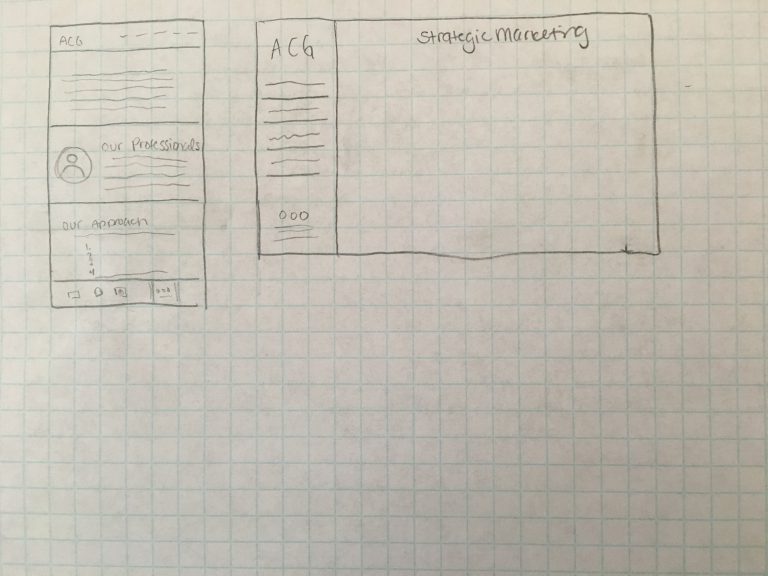 ACG
our Professionals
our Approach
1.
2.
3.
4
ACG
ooo
Strategic Marketing